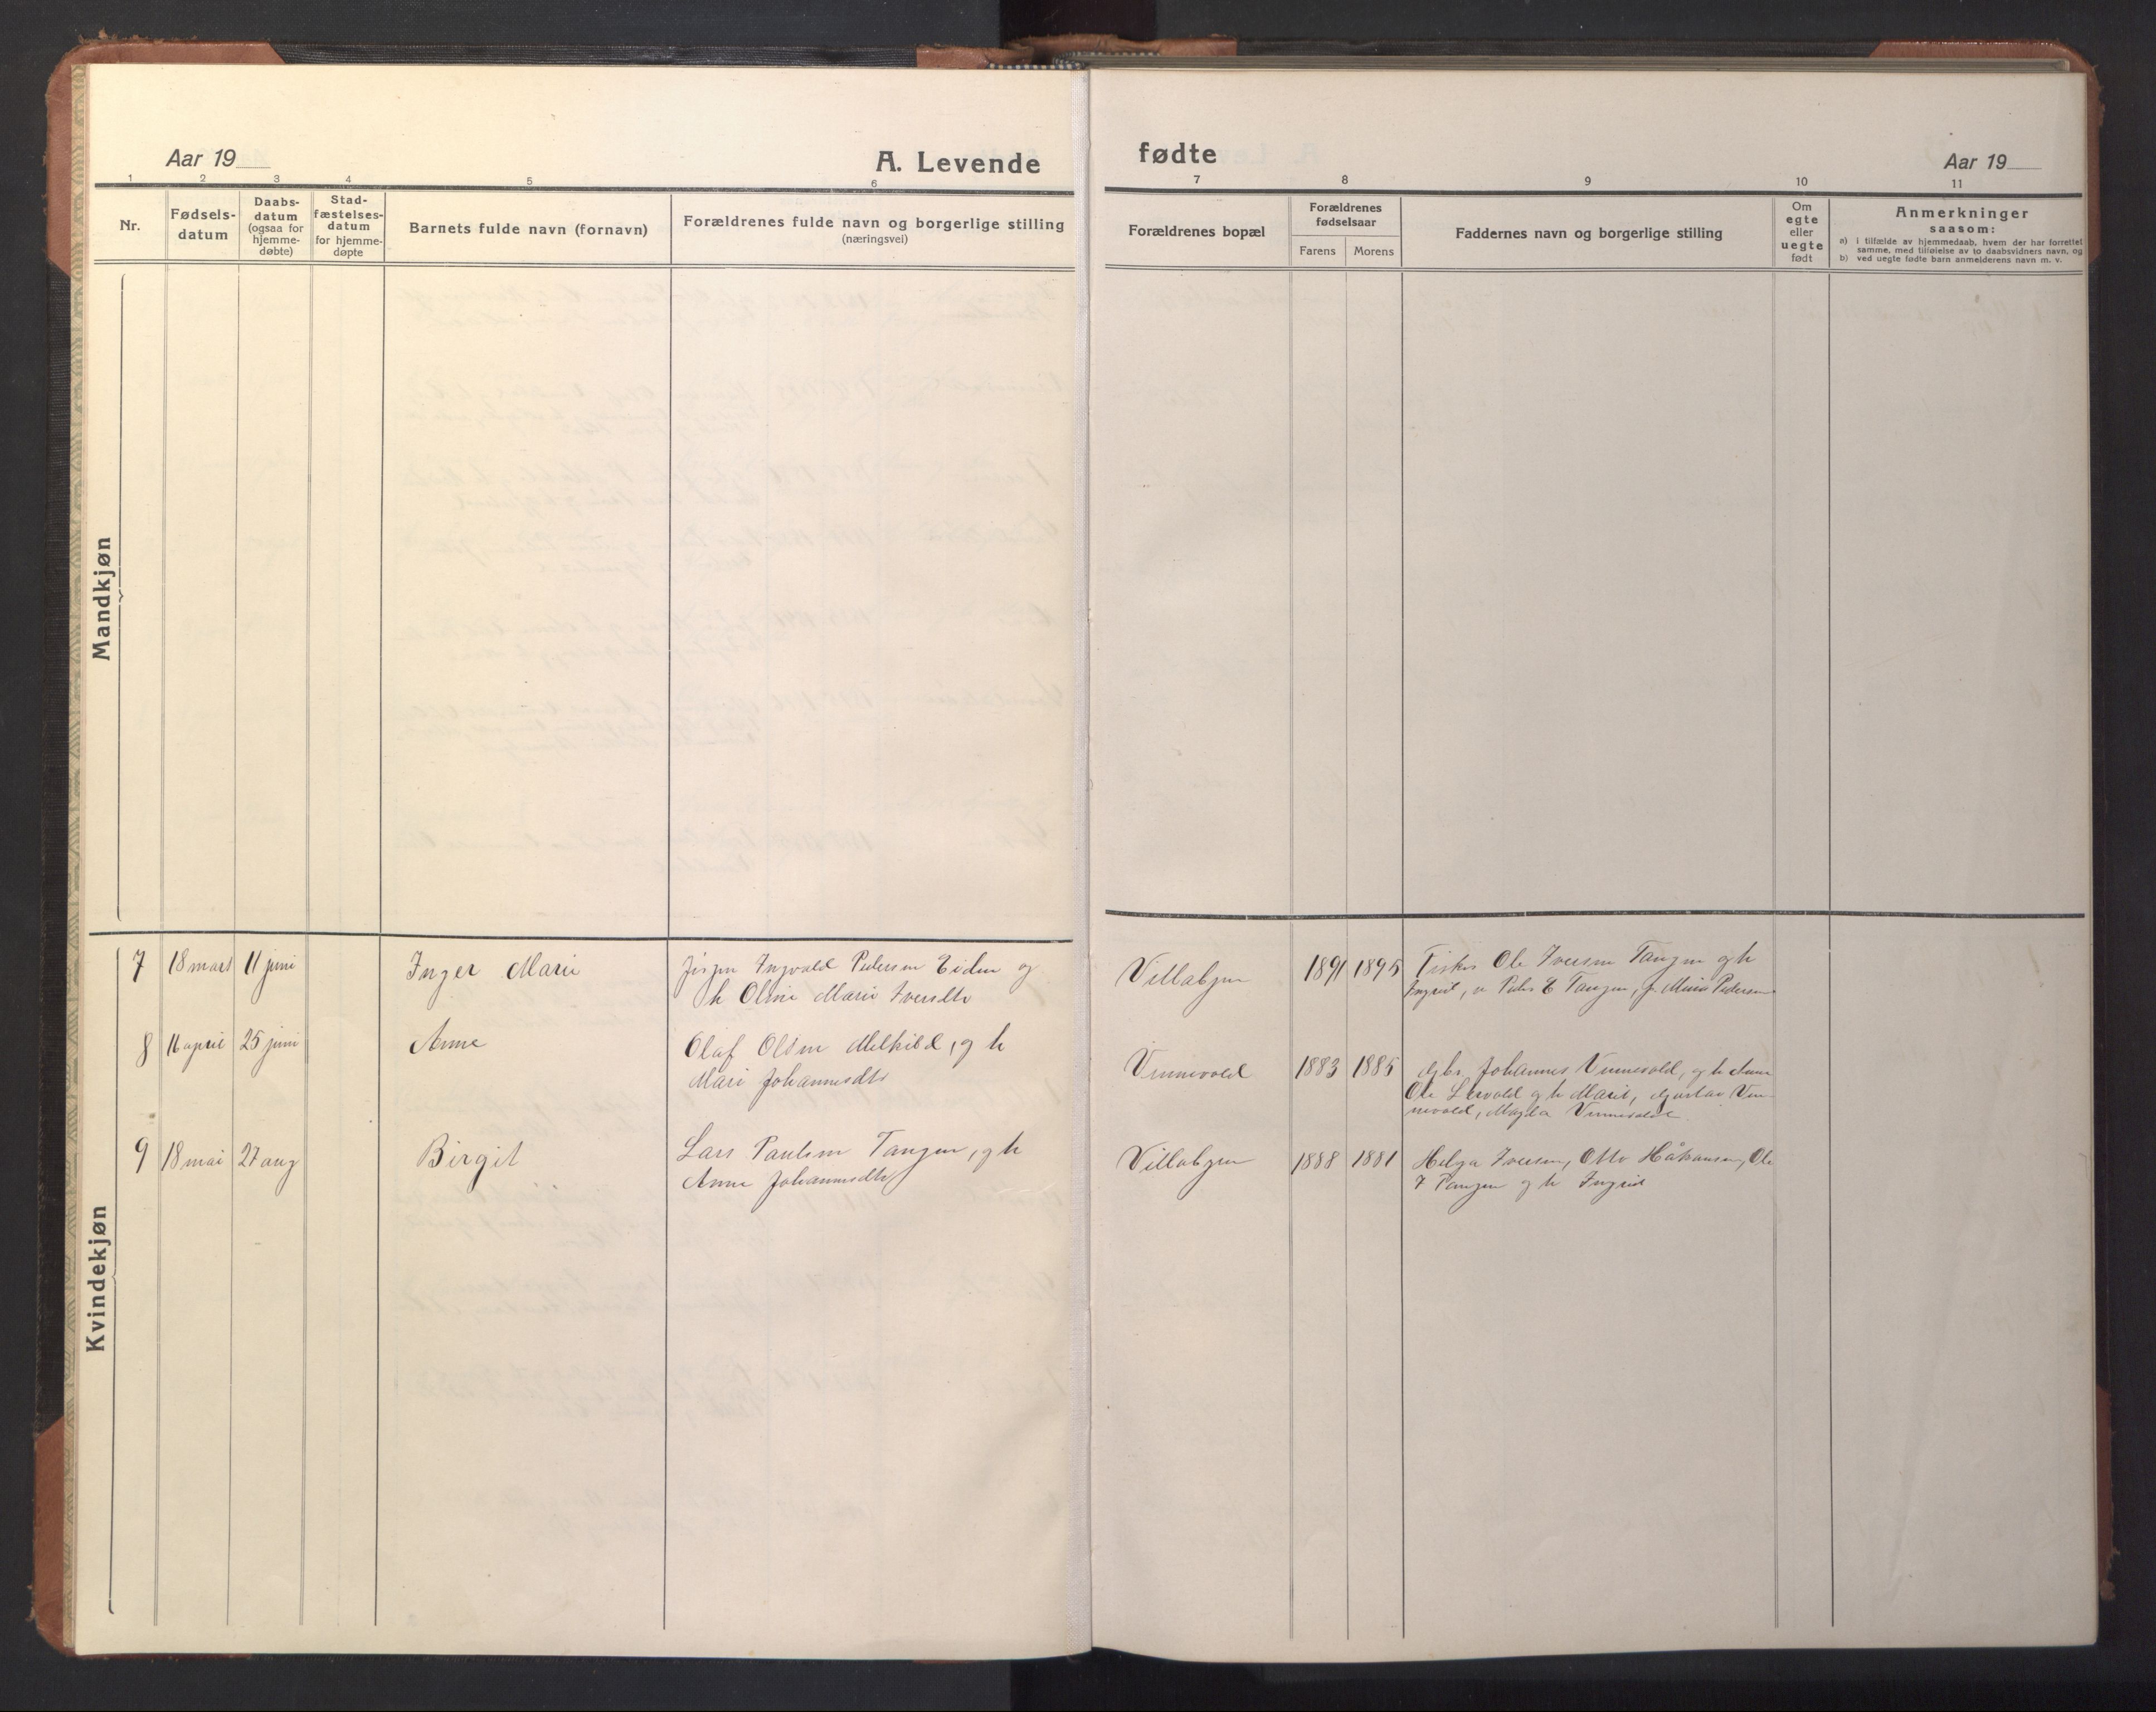 Aar 19
A. Levende
fødte
Aar 19
1 2 3 4 5 6 7 8 9 10 11
Nr.
Fødsels-
datum
Daabs-
datum
(ogsaa for
hjemme-
døbte)
Stad-
fæstelses-
datum
for hjemme-
døpte
Barnets fulde navn (fornavn)
Forældrenes fulde navn og borgerlige stilling
(næringsvei)
Forældrenes bopæl
Forældrenes
fødselsaar
Farens Morens
Faddernes navn og borgerlige stilling
Om
egte
eller
uegte
født
Anmerkninger
saasom:
a) i tilfælde av hjemmedaab, hvem der har forrettet
samme, med tilføielse av to daabsvidners navn, og
b) ved uegte fødte barn anmelderens navn m. v.
Mandkjøn
Kvindekjøn
7 18 mars 11 juni Inger Marie
Ingvald Pedersen Eiden og
h Oline Marie Iversdtr
1891 1895 Fisker Ole Iversen Tangen og h
Ingrid, Peder E Tangen, Pedersen
8 16 april 25 juni Anne
Olaf Olsen Melkild, og h
Mari Johannesdtr
Vinnevold 1883 1885 Johannes Vinnevold, og h Anne
Ole og h Marit, Gustav Vin-
nevold, Magda Vinnevold
9 18 mai 27 aug Birgit
Lars Paulsen Tangen, og h
Anne Johannesdtr
1888 1881 Helga Iversen, Otto Håkansen, Ole
I Tangen og h Ingrid